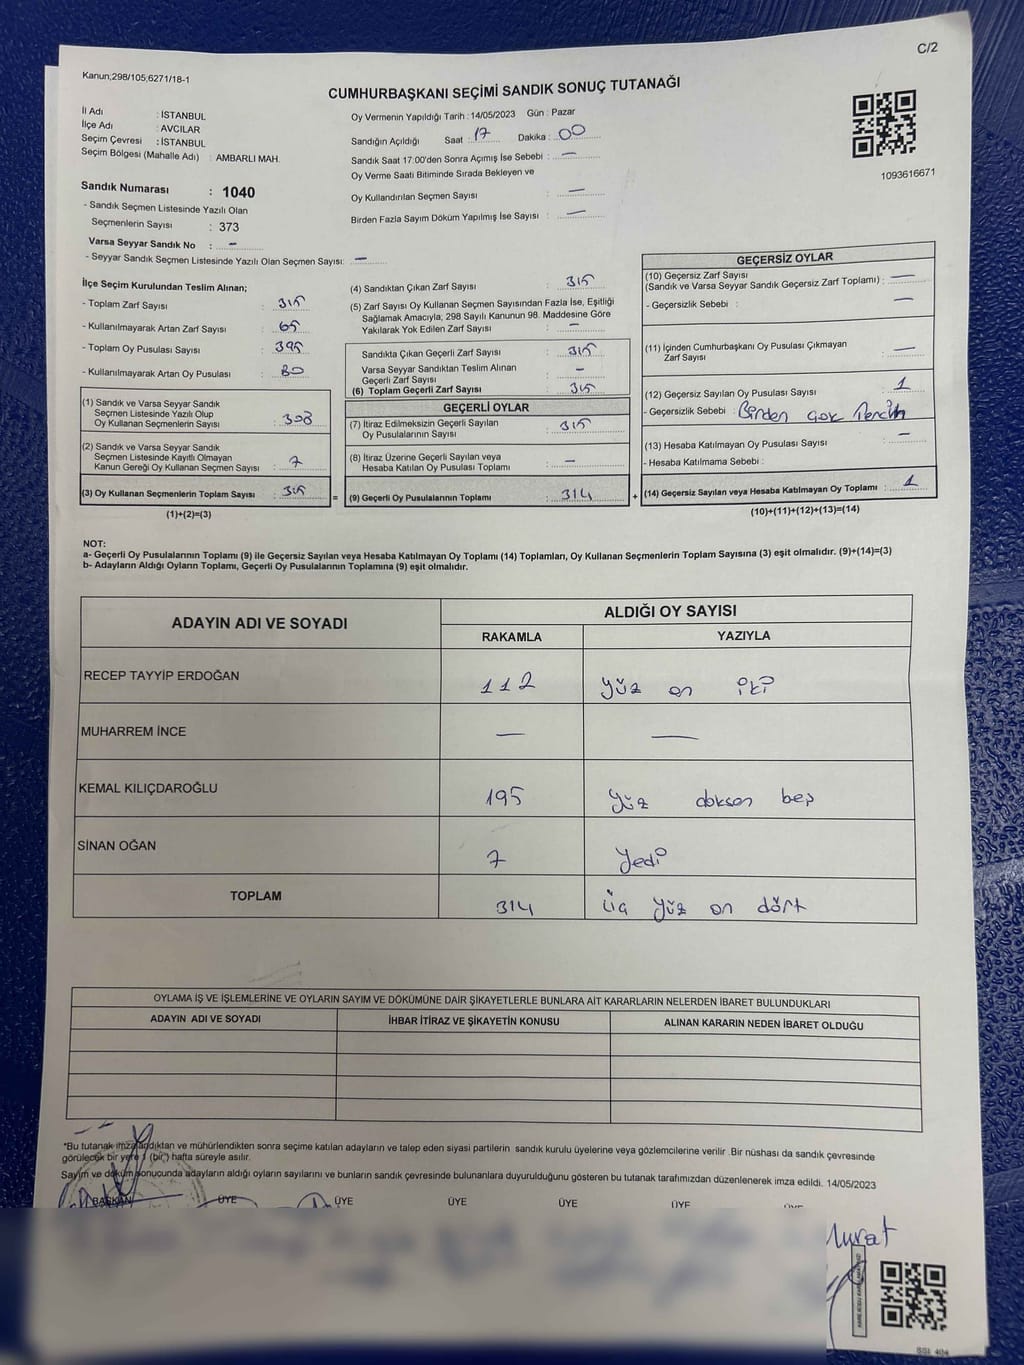 C/2
Kanun;298/105;6271/18-1
CUMHURBAŞKANI SEÇİMİ SANDIK SONUÇ TUTANAĞI
İl Adı : İSTANBUL
İlçe Adı : AVCILAR
Seçim Çevresi : İSTANBUL
Seçim Bölgesi (Mahalle Adı) : AMBARLI MAH.
Oy Vermenin Yapıldığı Tarih : 14/05/2023 Gün : Pazar
Sandığın Açıldığı Saat : 17 Dakika : 00
Sandık Saat 17:00'den Sonra Açımış İse Sebebi : —
Oy Verme Saati Bitiminde Sırada Bekleyen ve
Oy Kullandırılan Seçmen Sayısı : —
Birden Fazla Sayım Döküm Yapılmış İse Sayısı : —
1093616671
Sandık Numarası : 1040
- Sandık Seçmen Listesinde Yazılı Olan
Seçmenlerin Sayısı : 373
Varsa Seyyar Sandık No : —
- Seyyar Sandık Seçmen Listesinde Yazılı Olan Seçmen Sayısı: —
İlçe Seçim Kurulundan Teslim Alınan;
- Toplam Zarf Sayısı : 315
- Kullanılmayarak Artan Zarf Sayısı : 65
- Toplam Oy Pusulası Sayısı : 395
- Kullanılmayarak Artan Oy Pusulası : 80
(1) Sandık ve Varsa Seyyar Sandık
Seçmen Listesinde Yazılı Olup
Oy Kullanan Seçmenlerin Sayısı : 308
(2) Sandık ve Varsa Seyyar Sandık
Seçmen Listesinde Kayıtlı Olmayan
Kanun Gereği Oy Kullanan Seçmen Sayısı : 7
(3) Oy Kullanan Seçmenlerin Toplam Sayısı : 315
(1)+(2)=(3)
(4) Sandıktan Çıkan Zarf Sayısı : 315
(5) Zarf Sayısı Oy Kullanan Seçmen Sayısından Fazla İse, Eşitliği
Sağlamak Amacıyla, 298 Sayılı Kanunun 98. Maddesine Göre
Yakılarak Yok Edilen Zarf Sayısı : —
Sandıkta Çıkan Geçerli Zarf Sayısı : 315
Varsa Seyyar Sandıktan Teslim Alınan
Geçerli Zarf Sayısı : —
(6) Toplam Geçerli Zarf Sayısı : 315
GEÇERLİ OYLAR
(7) İtiraz Edilmeksizin Geçerli Sayılan
Oy Pusulalarının Sayısı : 315
(8) İtiraz Üzerine Geçerli Sayılan veya
Hesaba Katılan Oy Pusulası Toplamı : —
= (9) Geçerli Oy Pusulalarının Toplamı : 314
GEÇERSİZ OYLAR
(10) Geçersiz Zarf Sayısı
(Sandık ve Varsa Seyyar Sandık Geçersiz Zarf Toplamı) : —
- Geçersizlik Sebebi : —
(11) İçinden Cumhurbaşkanı Oy Pusulası Çıkmayan
Zarf Sayısı : —
(12) Geçersiz Sayılan Oy Pusulası Sayısı : 1
- Geçersizlik Sebebi : Birden çok tercih
(13) Hesaba Katılmayan Oy Pusulası Sayısı : —
- Hesaba Katılmama Sebebi :
+ (14) Geçersiz Sayılan veya Hesaba Katılmayan Oy Toplamı : 1
(10)+(11)+(12)+(13)=(14)
NOT:
a- Geçerli Oy Pusulalarının Toplamı (9) ile Geçersiz Sayılan veya Hesaba Katılmayan Oy Toplamı (14) Toplamları, Oy Kullanan Seçmenlerin Toplam Sayısına (3) eşit olmalıdır. (9)+(14)=(3)
b- Adayların Aldığı Oyların Toplamı, Geçerli Oy Pusulalarının Toplamına (9) eşit olmalıdır.
ADAYIN ADI VE SOYADI ALDIĞI OY SAYISI
RAKAMLA YAZIYLA
RECEP TAYYİP ERDOĞAN 112 yüz on iki
MUHARREM İNCE — —
KEMAL KILIÇDAROĞLU 195 yüz doksan beş
SİNAN OĞAN 7 yedi
TOPLAM 314 üç yüz on dört
OYLAMA İŞ VE İŞLEMLERİNE VE OYLARIN SAYIM VE DÖKÜMÜNE DAİR ŞİKAYETLERLE BUNLARA AİT KARARLARIN NELERDEN İBARET BULUNDUKLARI
ADAYIN ADI VE SOYADI İHBAR İTİRAZ VE ŞİKAYETİN KONUSU ALINAN KARARIN NEDEN İBARET OLDUĞU
*Bu tutanak imzalandıktan ve mühürlendikten sonra seçime katılan adayların ve talep eden siyasi partilerin sandık kurulu üyelerine veya gözlemcilerine verilir .Bir nüshası da sandık çevresinde
görülecek bir yere 1 (bir) hafta süreyle asılır.
Sayım ve döküm sonucunda adayların aldığı oyların sayılarını ve bunların sandık çevresinde bulunanlara duyurulduğunu gösteren bu tutanak tarafımızdan düzenlenerek imza edildi. 14/05/2023
BAŞKAN ÜYE ÜYE ÜYE ÜYE ÜYE ÜYE
Murat